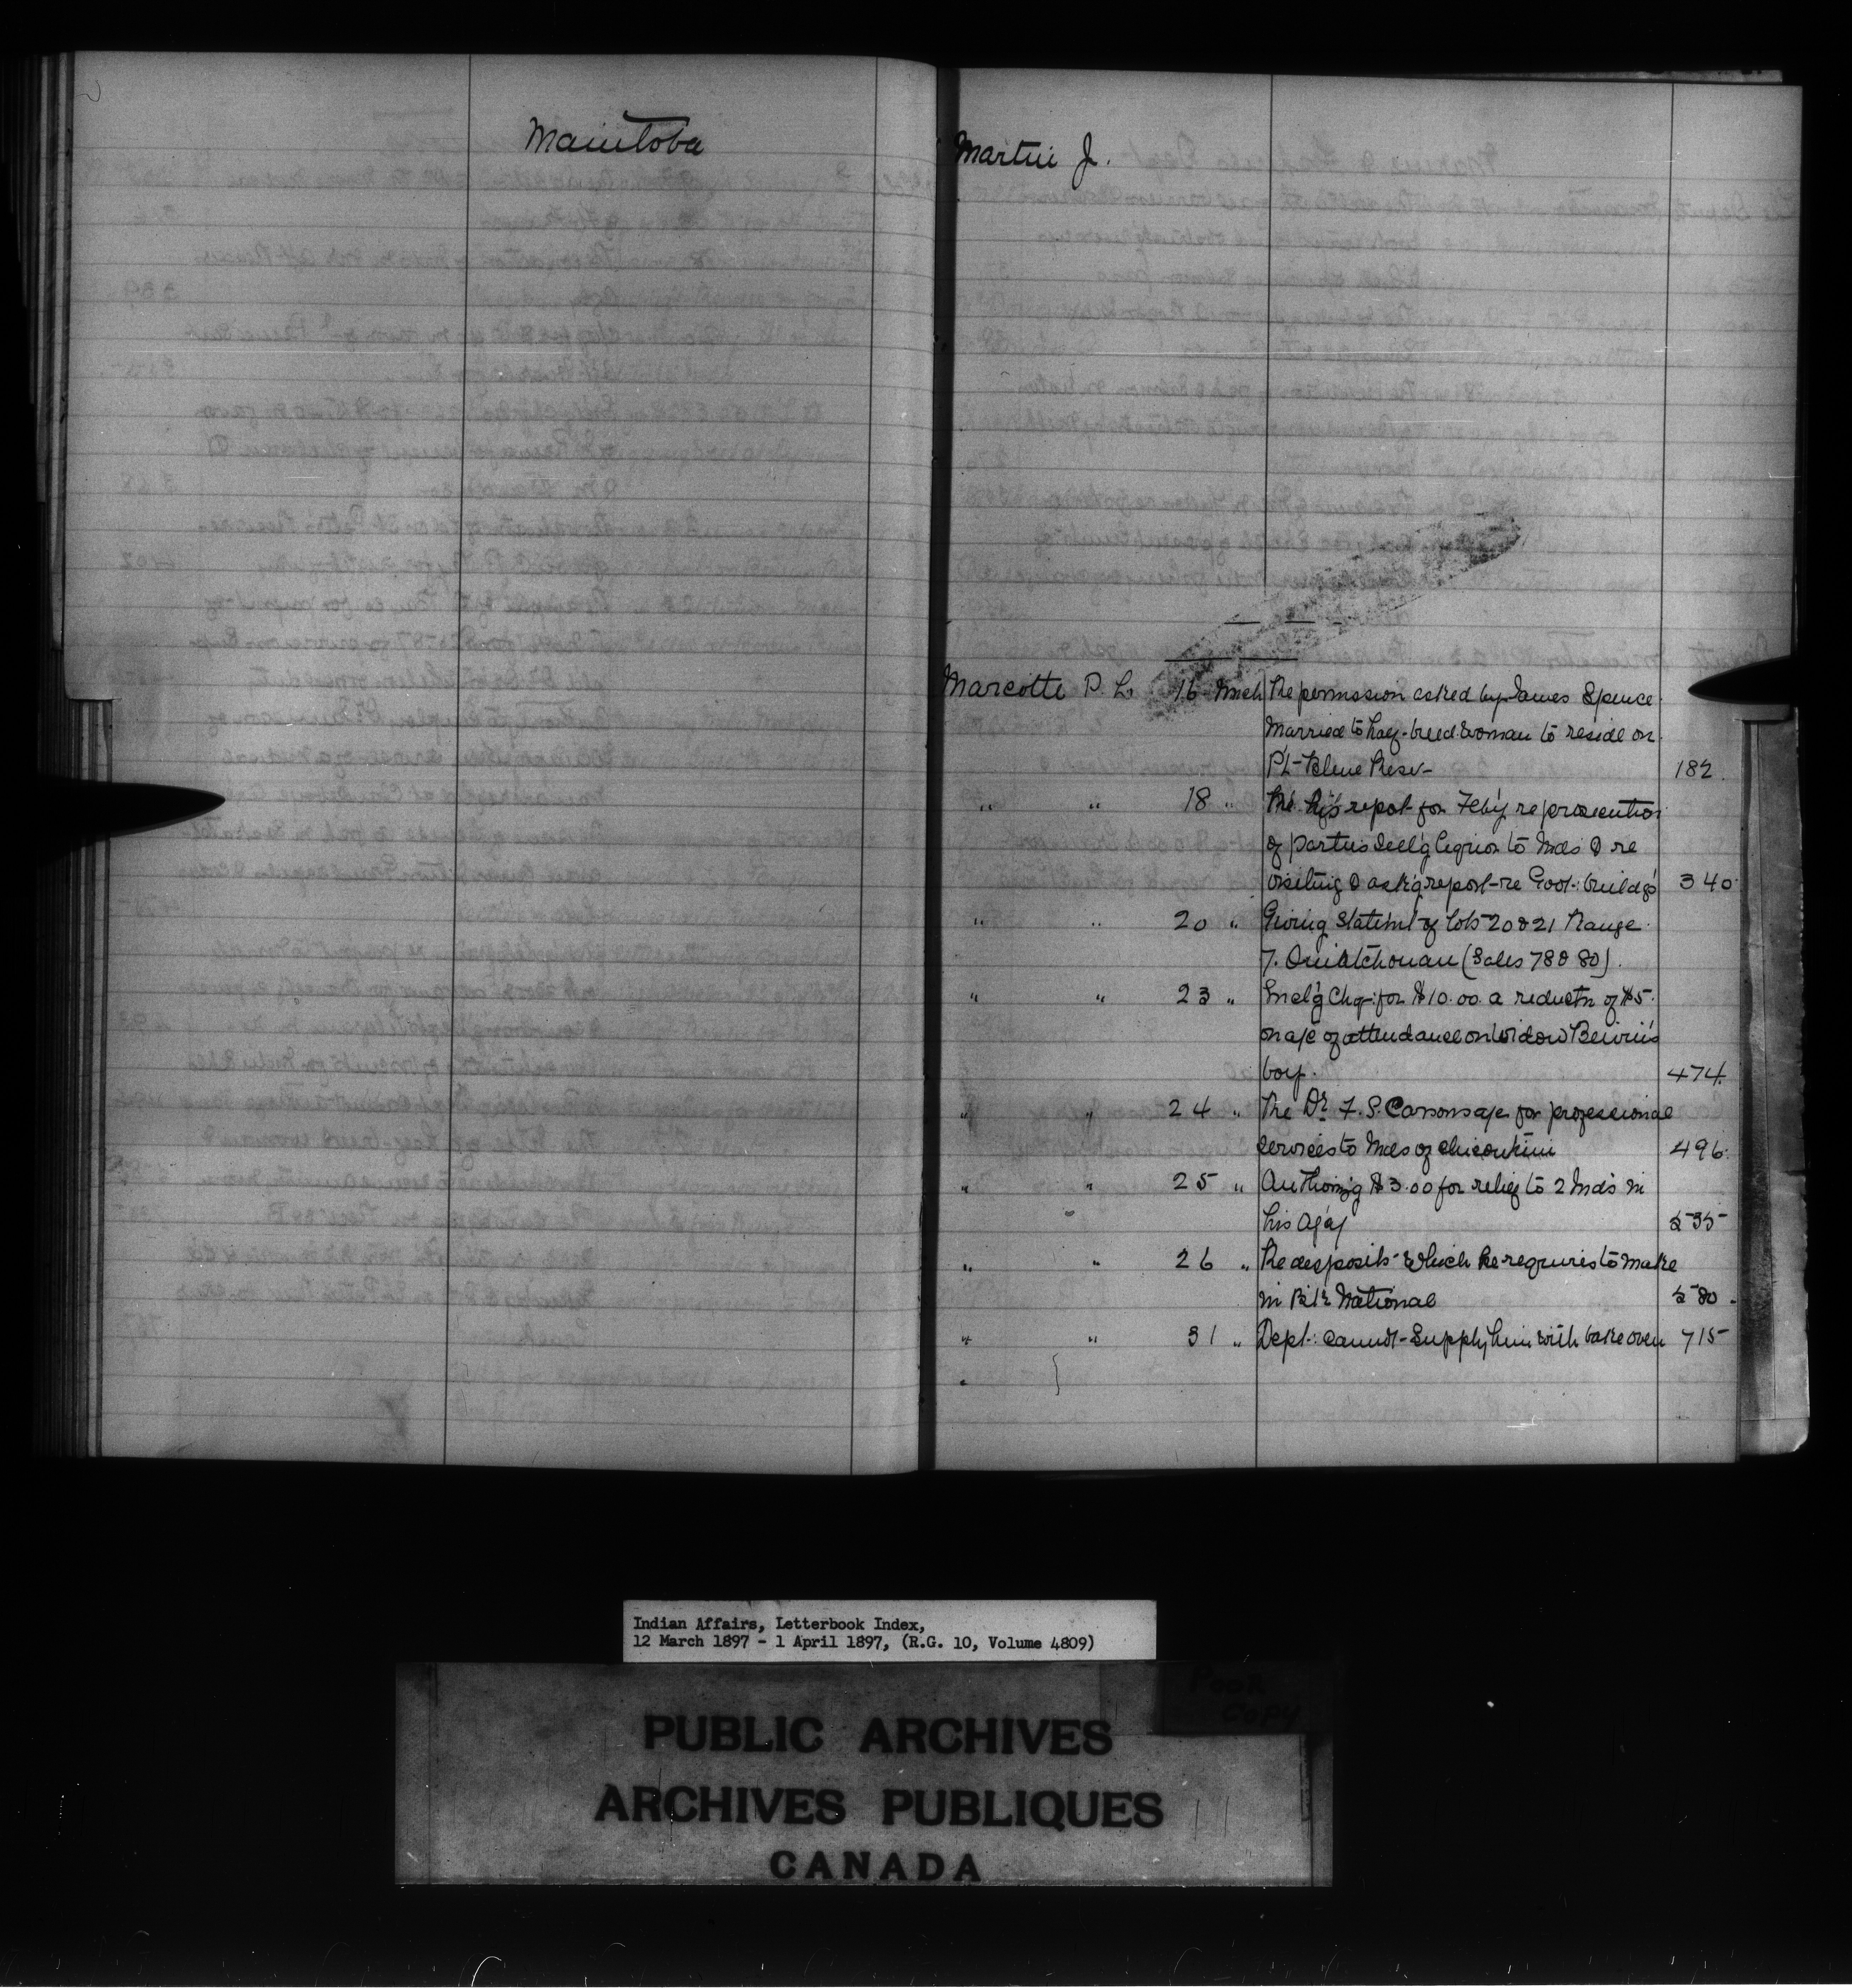 Manitoba
Martin J.
Marcotte P. L. 16 Mch Re permission asked by James Spence
Married to half-breed woman to reside on
Pt Bleue Resv 182
" " 18 " Re his report for Feby re prosecution
of parties sell'g liquor to Inds & re
visiting & ask'g report re Govt. build'gs 340
" " 20 " Giving Statem't of lots 20 & 21 Range
7. Ouiatchouan (Sales 78 & 80).
" " 23 " Encl'g Chq: for $10.00 a reduct'n of $5.
on a/c of attendance on Widow
boy. 474.
" " 24 " Re Dr. F. S. a/c for professional
services to Inds of Chicoutimi 496.
" " 25 " Authoriz'g $3.00 for relief to 2 Inds in
his Ag'y 535
" " 26 " Re deposits which he requires to make
in Bk National 580.
" " 31 " Dept: cannot supply him with bake oven 715
"
Indian Affairs, Letterbook Index,
12 March 1897 - 1 April 1897, (R.G. 10, Volume 4809)
POOR
COPY
PUBLIC ARCHIVES
ARCHIVES PUBLIQUES
CANADA